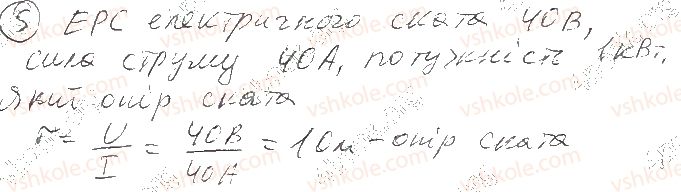 5 ЕРС електричного ската 40В,
сила струму 40А, потужність 1кВт,
Який опір ската
r = U/I = 40В/40А = 1 Ом - опір ската
vshkole.com